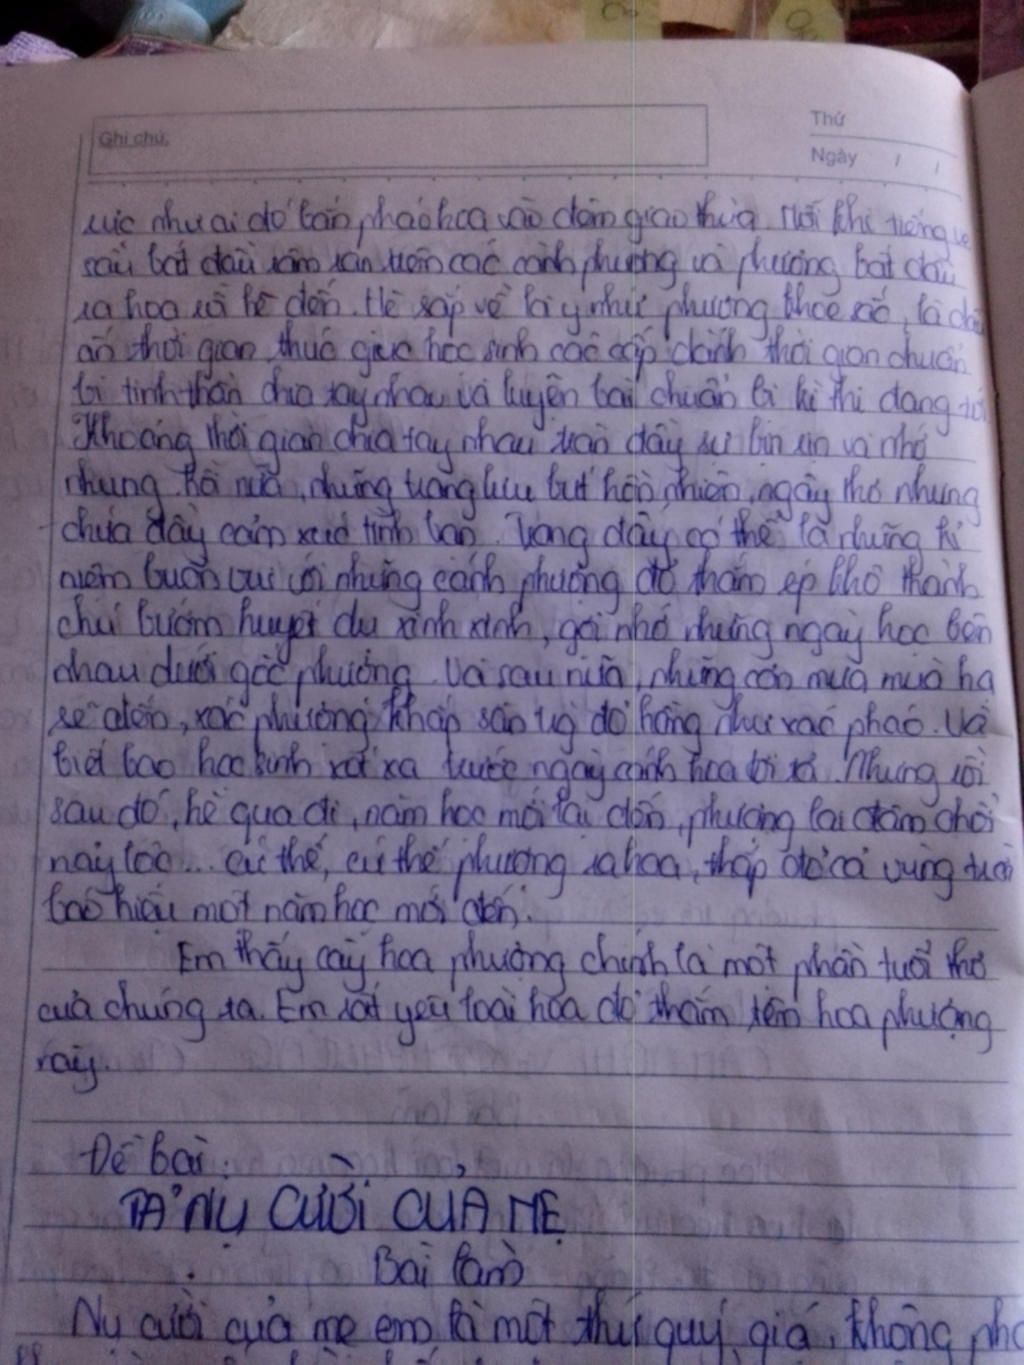 Ghi chú:
Thứ
Ngày / /
rực như ai đó bắn pháo hoa vào đêm giao thừa. Mỗi khi tiếng ve
sầu bắt đầu râm ran trên các cành phượng và phượng bắt đầu
ra hoa là hè đến. Hè sắp về là y như phượng khoe sắc, là
ấn thời gian thúc giục học sinh các cấp dành thời gian chuẩn
bị tinh thần chia tay nhau và luyện bài chuẩn bị kì thi đang tới
Khoảng thời gian chia tay nhau tràn đầy sự bịn rịn và nhớ
nhung. Rồi nữa, những trang lưu bút hồn nhiên, ngây thơ nhưng
chứa đầy cảm xúc tình bạn. Trong đấy có thể là những kỉ
niệm buồn vui với những cánh phượng đỏ thắm ép khô thành
chú bướm huyết dụ xinh xinh, gợi nhớ những ngày học bên
nhau dưới gốc phượng. Và sau nữa, những cơn mưa mùa hạ
sẽ đến, xác phượng khắp sân rụng đỏ hồng như xác pháo. Và
biết bao học sinh xót xa trước ngày cánh hoa rời xa. Nhưng rồi
sau đó, hè qua đi, năm học mới lại đến, phượng lại đâm chồi
nảy lộc... cứ thế, cứ thế phượng ra hoa, thắp đỏ cả vùng trời
báo hiệu một năm học mới đến.
Em thấy cây hoa phượng chính là một phần tuổi thơ
của chúng ta. Em rất yêu loài hoa đỏ thắm tên hoa phượng
này.
Đề bài:
TẢ NỤ CƯỜI CỦA MẸ
Bài làm
Nụ cười của mẹ em là một thứ quý giá, không